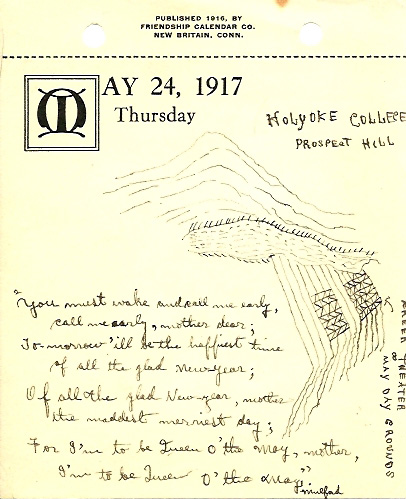 PUBLISHED 1916, BY
FRIENDSHIP CALENDAR CO.
NEW BRITAIN, CONN.
MAY 24, 1917
Thursday
HOLYOKE COLLEGE
PROSPECT HILL
"You must wake and call me early,
call me early, mother dear;
To-morrow 'ill be the happiest time
of all the glad New-year;
Of all the glad New-year, mother
the maddest merriest day;
For I'm to be Queen O' the May, mother,
I'm to be Queen O' the May"
GREEK THEATER
&
MAY DAY GROUNDS